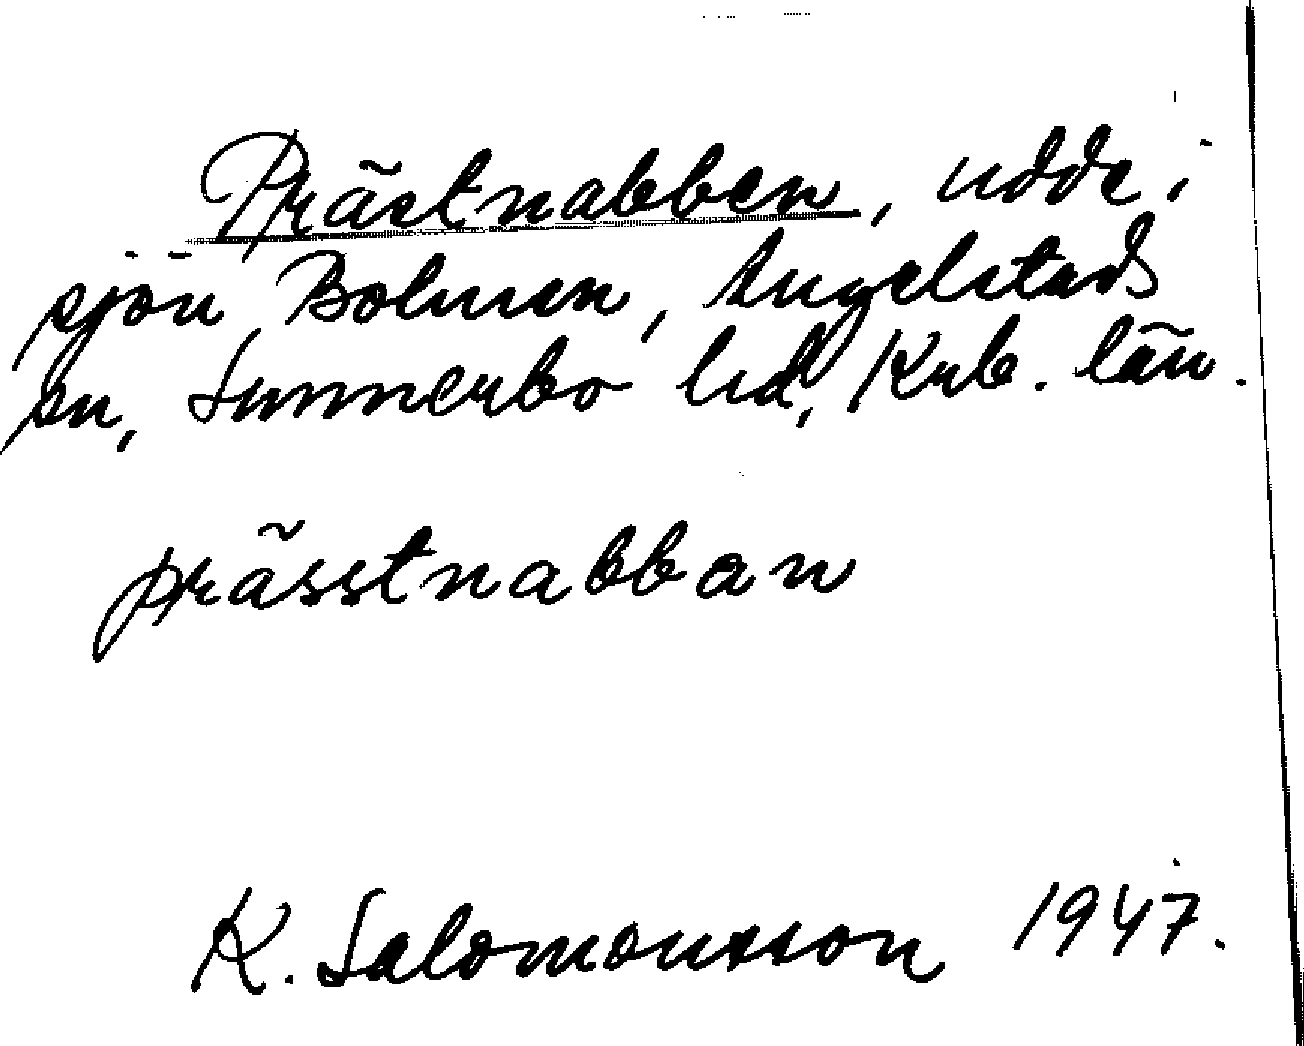 Prästnabben, udde i
sjön Bolmen, Angelstads
sn, Sunnerbo hd, Krb. län.
prässtnabban
K. Salomonsson 1947.